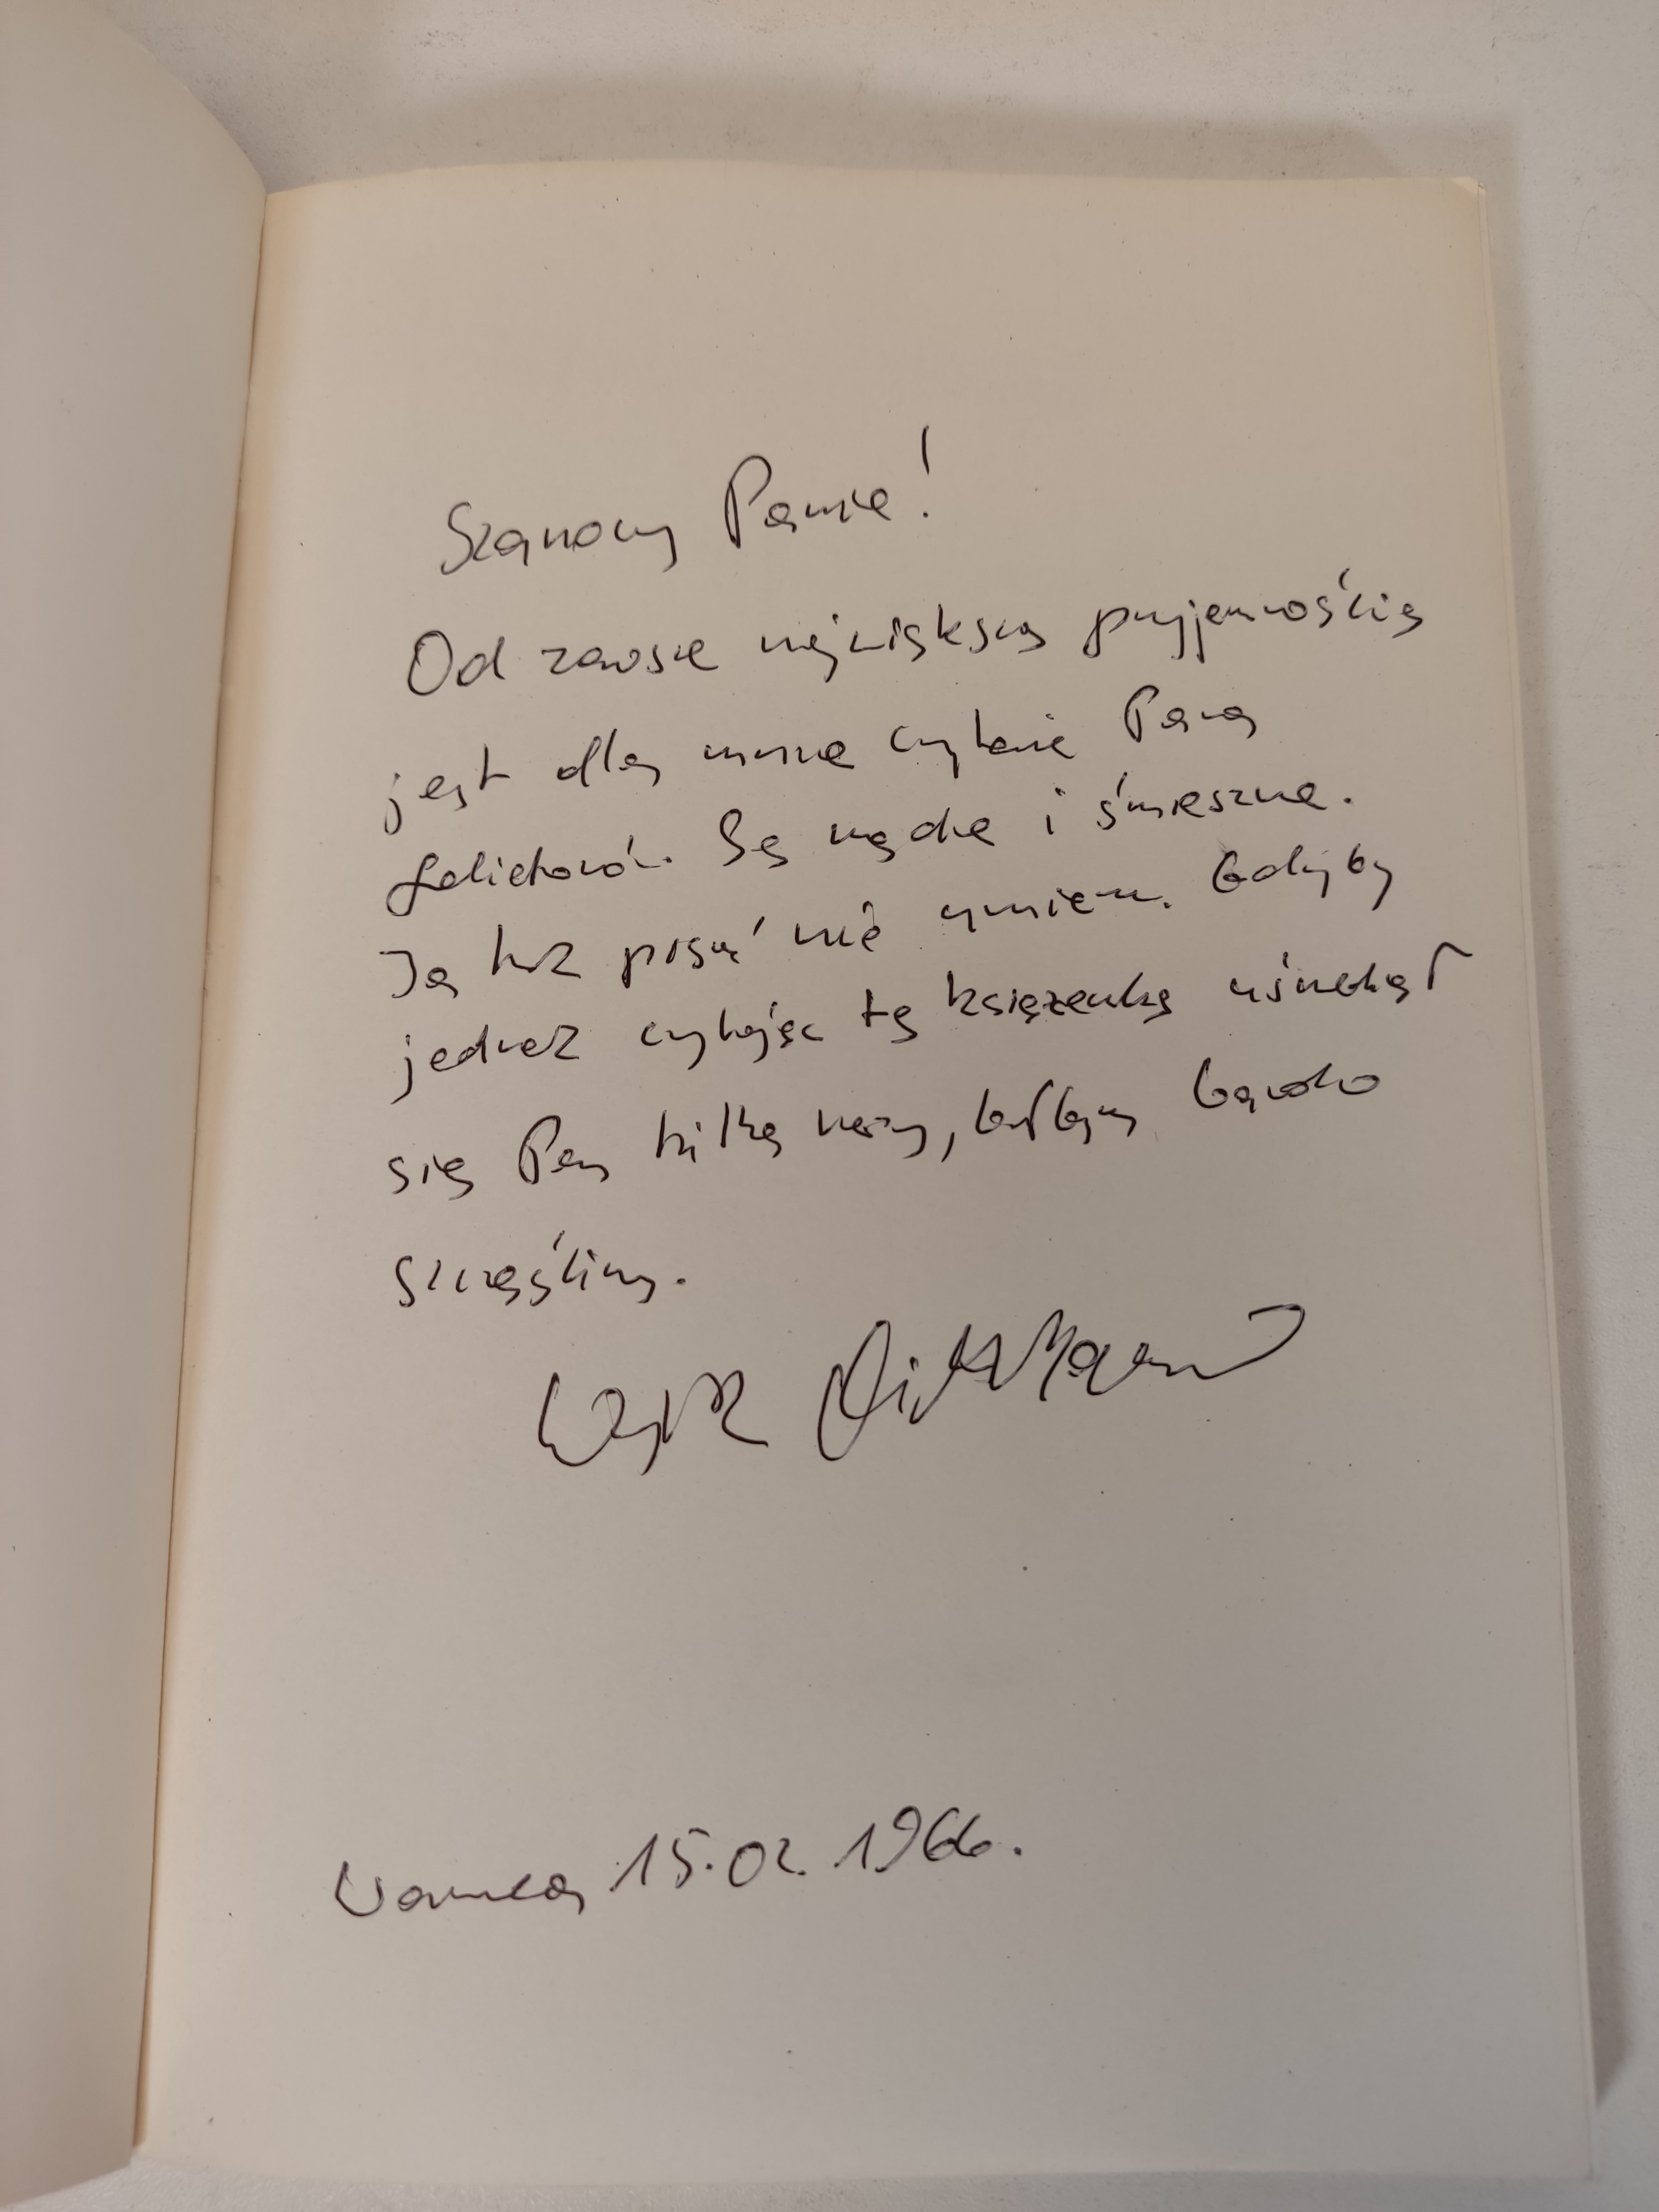 Szanowny Panie!
Od zawsze największą przyjemnością
jest dla mnie czytanie Pana
felietonów. Są mądre i śmieszne.
Ja tak pisać nie umiem. Gdyby
jednak czytając tę książeczkę uśmiechął
się Pan kilka razy, byłbym bardzo
szczęśliwy.
Warszawa 15.02.1966.